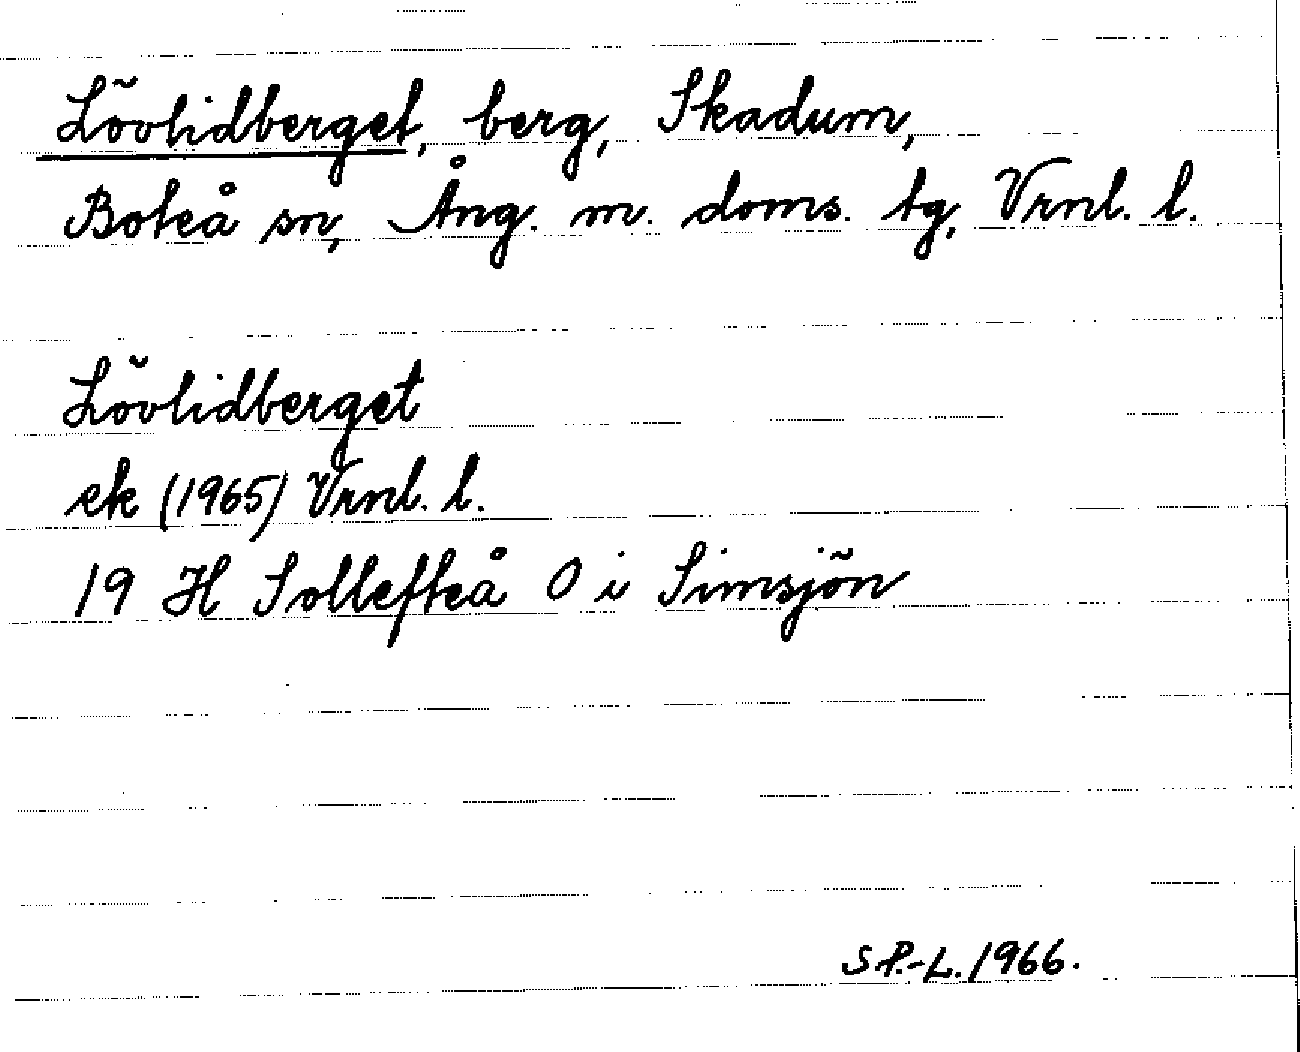 Lövlidberget, berg, Skadum,
Boteå sn, Ång. m. doms. tg, Vrnl. l.
Lövlidberget
ek (1965) Vrnl. l.
19 H Sollefteå O i Simsjön
S P.-L. 1966.